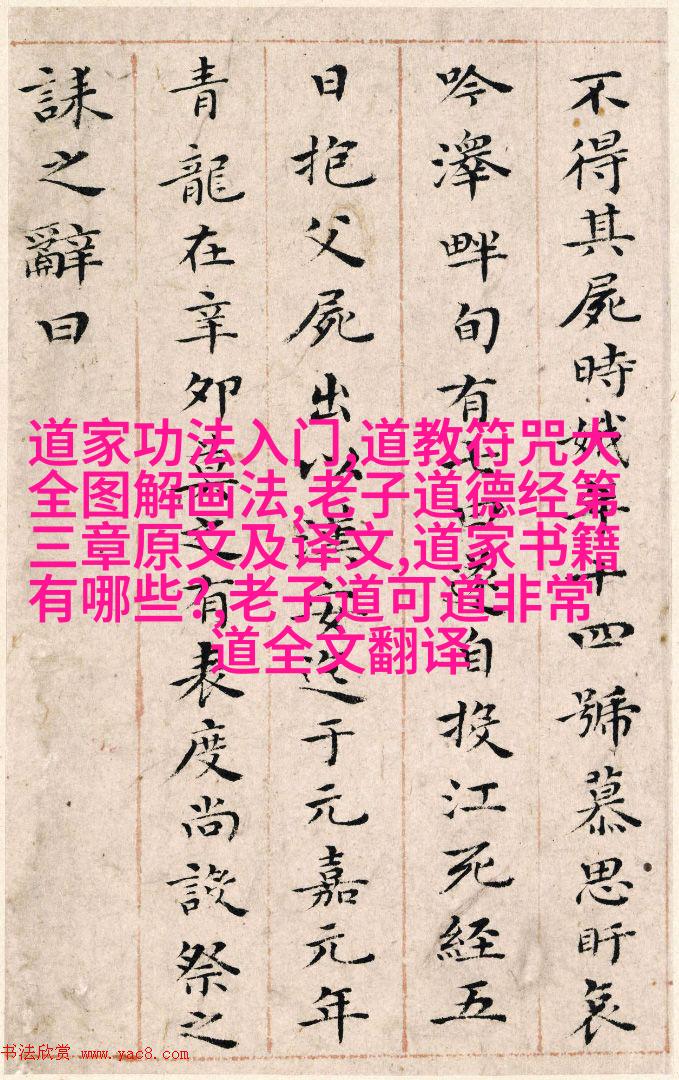 不得其屍時娥年十四號慕思盱哀
吟澤畔旬有七日遂自投江死經五
日抱父屍出以漢安迄于元嘉元年
青龍在辛卯莫之有表度尚設祭之
誄之辭曰
道家功法入门,道教符咒大
全图解画法,老子道德经第
三章原文及译文,道家书籍
有哪些?,老子道可道非常
道全文翻译
书法欣赏 www.yac8.com